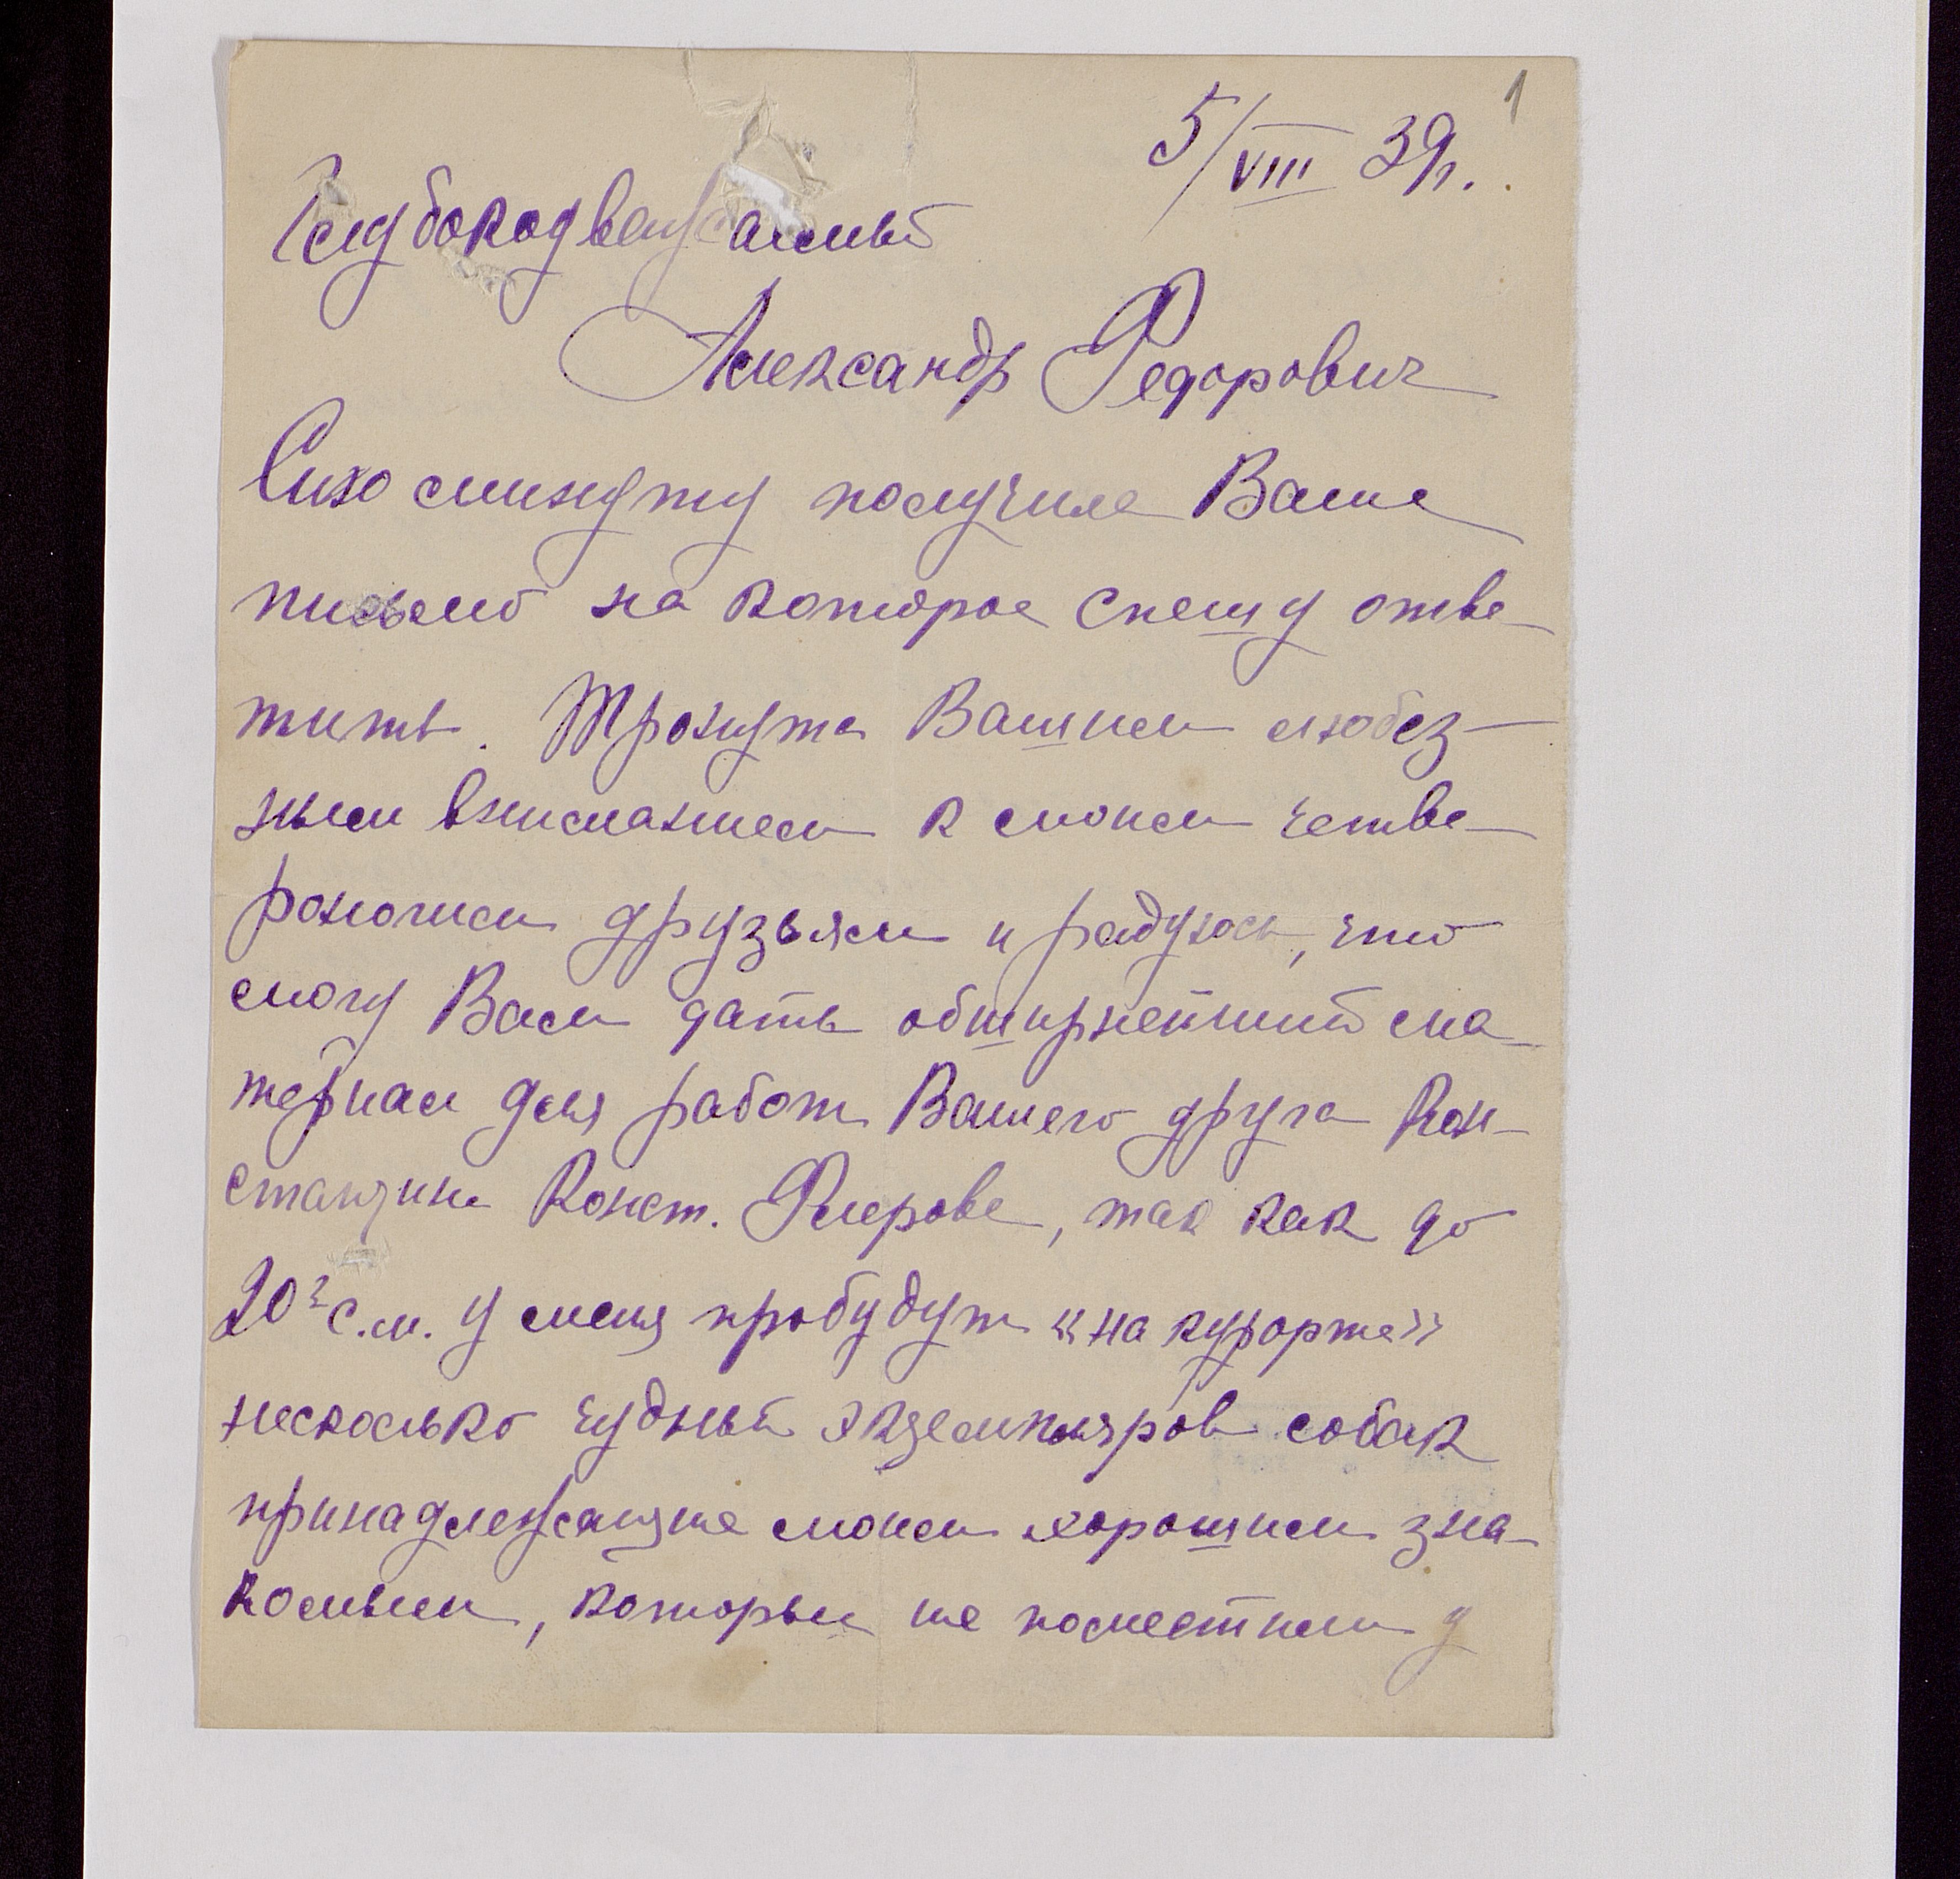 1
5/VIII 39г.
Глубокоуважаемый
Александр Федорович
Сию минуту получила Ваше
письмо на которое спешу отве-
тить. Тронута Вашим любез-
ным вниманием к моим четве-
роногим друзьям и радуюсь, что
смогу Вам дать обширнейший ма-
териал для работ Вашего друга Кон-
стантина Конст. Флерова, так как до
20го с.м. у меня пробудут «на курорте»
несколько чудных экземпляров собак
принадлежащие моим хорошим зна-
комым, которые не поместили у